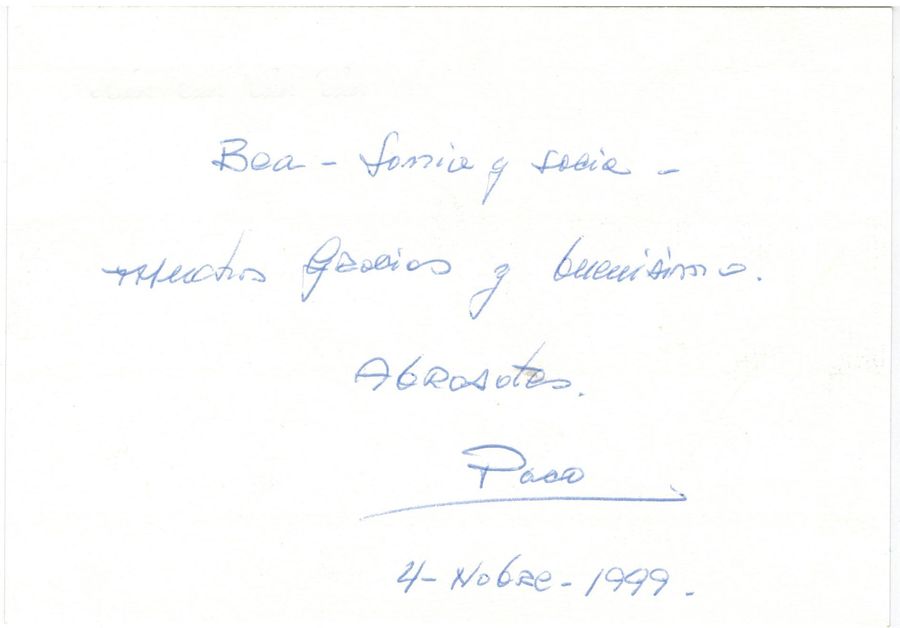 Bea - Sonia y socia -
Muchas Gracias y buenisimo.
Abrasotes.
Paco
4 - Nobre - 1999.